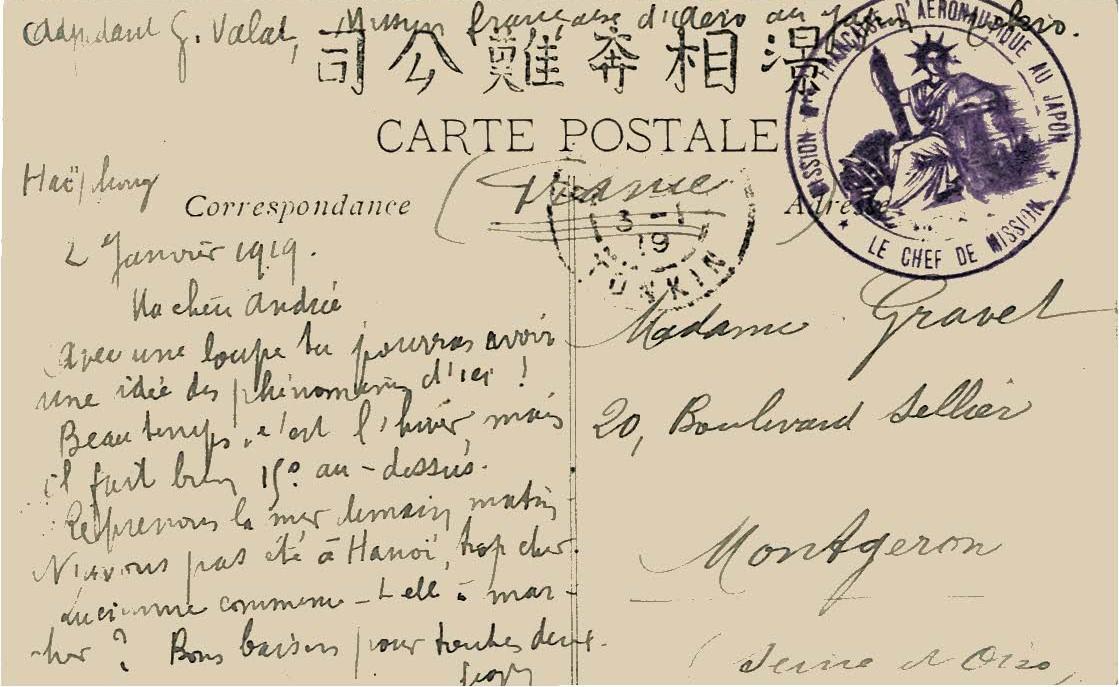 Adjudant G. Valat, Mission française d'Aéro au Japon
司公難奔相
CARTE POSTALE
MISSION FRANÇAISE D'AÉRONAUTIQUE AU JAPON
LE CHEF DE MISSION
Haïphong
Correspondance
(France)
Adresse
3 - 1
19
TONKIN
2 Janvier 1919.
Ma chère Andrée
Avec une loupe tu pourras avoir
une idée des phénomènes d'ici !
Beau temps, c'est l'hiver, mais
il fait bien 15° au-dessus.
Reprenons la mer demain matin
N'avons pas été à Hanoï, trop cher.
Lucienne commence-t-elle à mar-
cher ? Bons baisers pour toutes deux.
Madame Gravel
20, Boulevard Sellier
Montgeron
(Seine et Oise